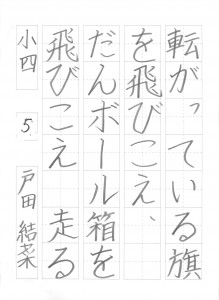 転がっている旗
を飛びこえ、
だんボール箱を
飛びこえ　走る
小四　5　戸田 結菜